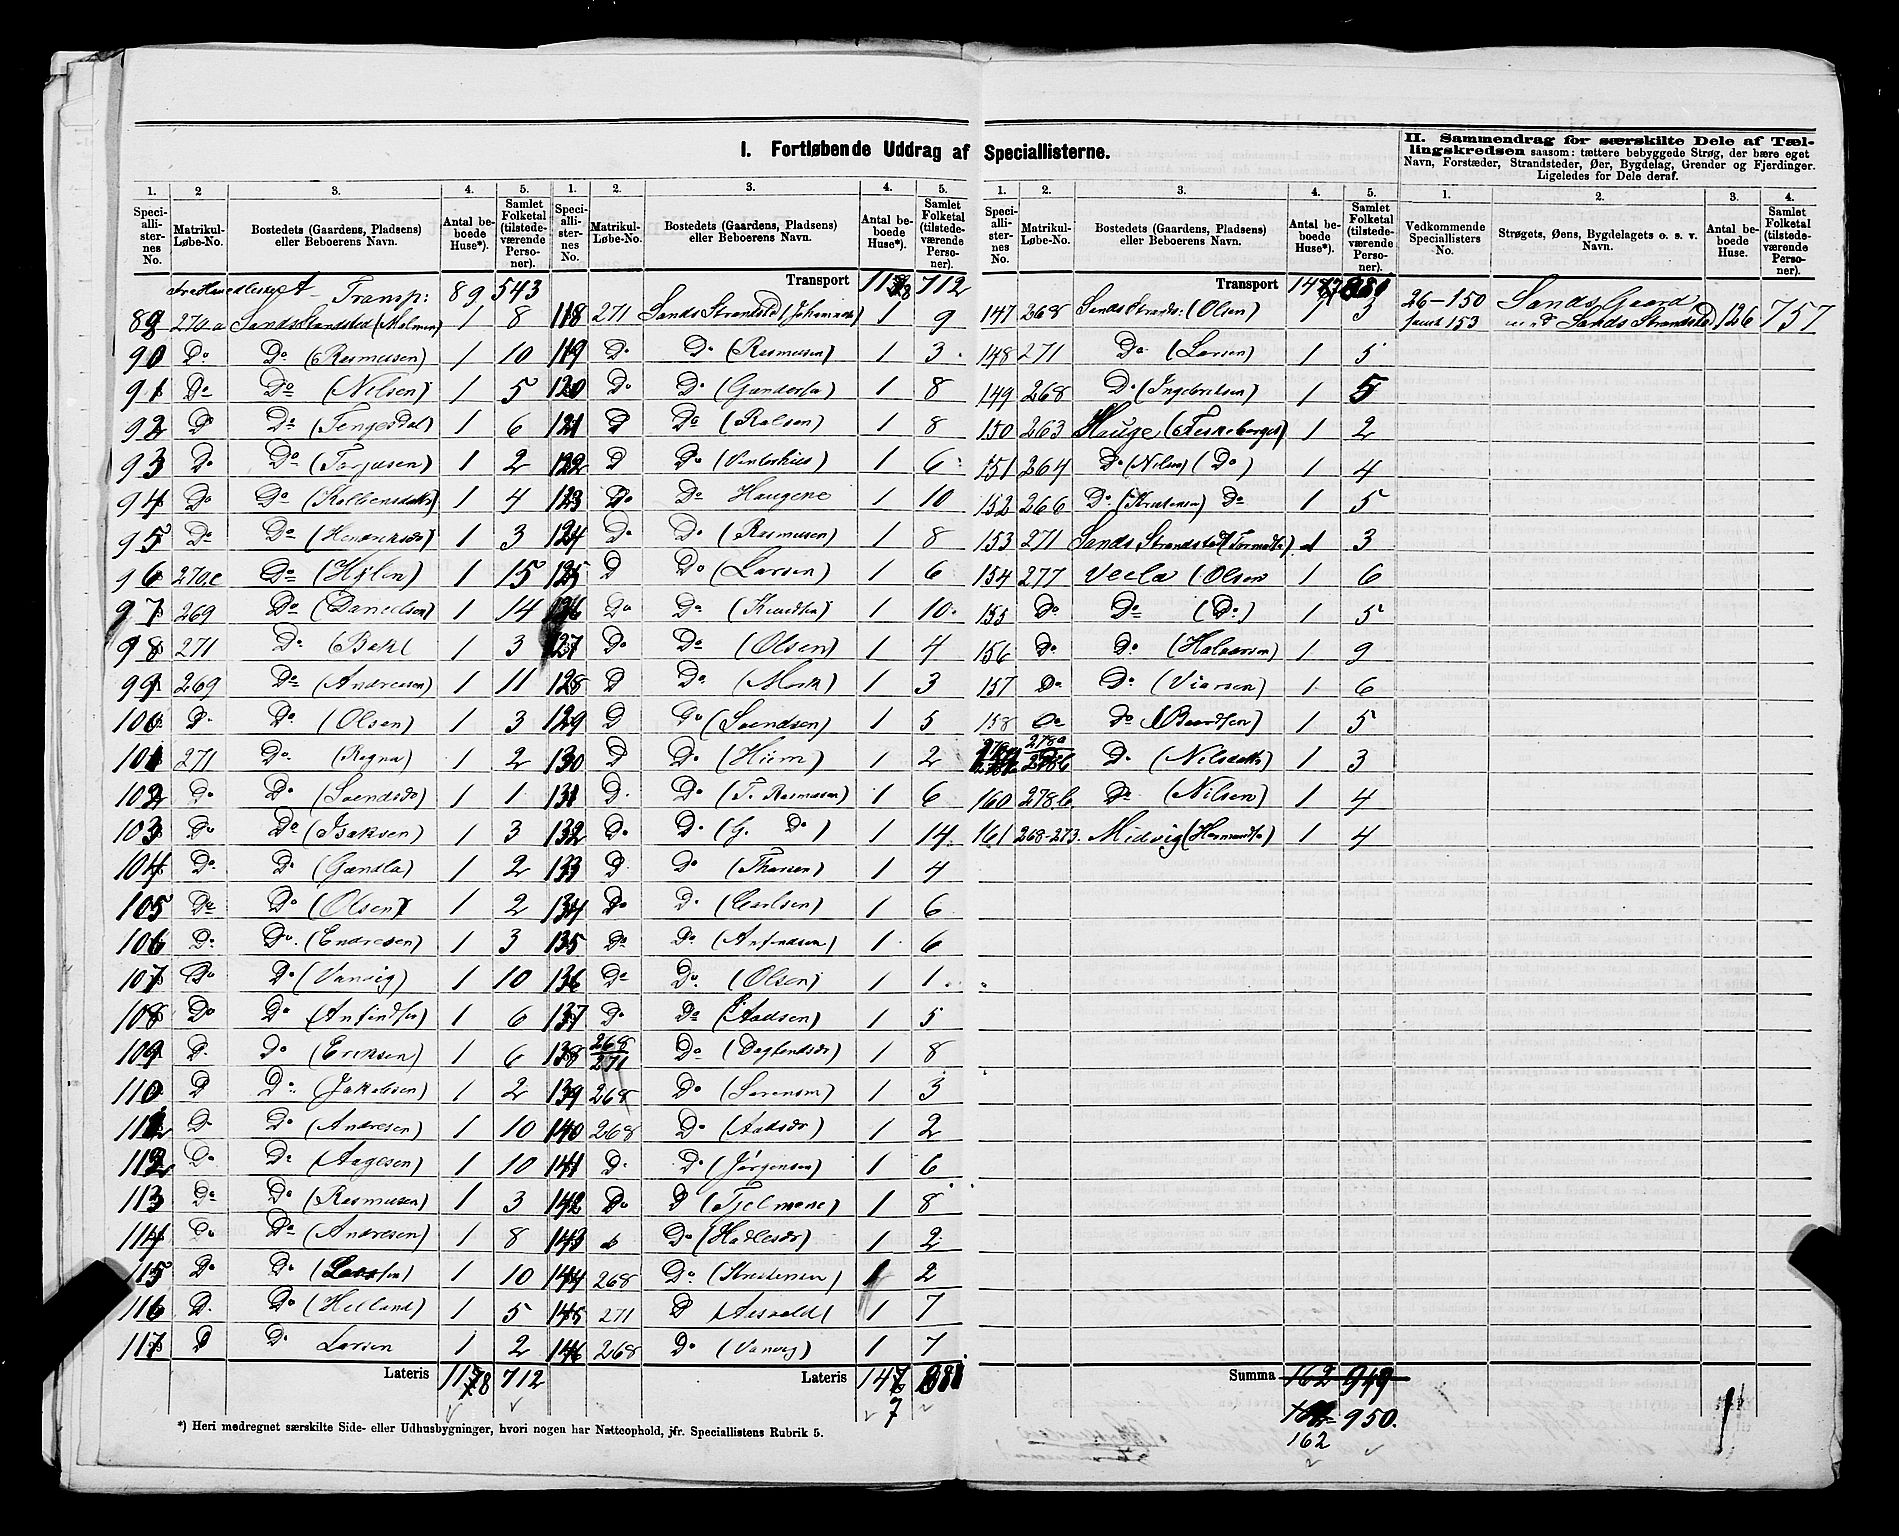 I. Fortløbende Uddrag af Speciallisterne.
II. Sammendrag for særskilte Dele af Tæl-
lingskredsen saasom: tættere bebyggede Strøg, der bære eget
Navn, Forstæder, Strandsteder, Øer, Bygdelag, Grender og Fjerdinger.
Ligeledes for Dele deraf.
1. 2 3. 4. 5.
Speciallisternes No. Matrikul-Løbe-No. Bostedets (Gaardens, Pladsens) eller Beboerens Navn. Antal beboede Huse*). Samlet Folketal (tilstedeværende Personer).
Transp: 89 543
89 270a Sands Strandsted (Malmen) 1 8
90 Do Do (Rasmusen) 1 10
91 Do Do (Nilsen) 1 5
92 Do Do (Tengesdal) 1 6
93 Do Do (Tarjesen) 1 2
94 Do Do 1 4
95 Do Do (Henriksdr) 1 3
96 270c Do (Hylen) 1 15
97 269 Do (Danielsen) 1 14
98 271 Do (Bakl 1 3
99 269 Do (Andreasen) 1 11
100 D. Do (Olsen) 1 3
101 271 Do. (Ragna) 1 2
102 Do Do (Svendsdr 1 1
103 Do Do (Isaksen) 1 3
104 Do. Do (Gundla) 1 2
105 Do Do (Olsen) 1 2
106 Do. Do. (Endresen) 1 3
107 Do Do (Vanvig) 1 10
108 Do Do (Anfindsen) 1 6
109 D. Do (Eriksen) 1 6
110 D Do. (Jakobsen) 1 2
111 Do Do (Andresen) 1 10
112 Do Do (Aagesen) 1 10
113 Do Do (Rasmusen) 1 3
114 Do Do (Andresen) 1 8
115 Do Do 1 10
116 D. Do (Helland) 1 5
117 D Do Larsen 1 2
Lateris 118 712
*) Heri medregnet særskilte Side- eller Udhusbygninger, hvori nogen har Natteophold, jfr. Speciallistens Rubrik 5.
1. 2. 3. 4. 5.
Speciallisternes No. Matrikul-Løbe-No. Bostedets (Gaardens, Pladsens) eller Beboerens Navn. Antal beboede Huse*). Samlet Folketal (tilstedeværende Personer).
Transport 118 712
118 271 Sands Strandsted 1 9
119 Do Do (Rasmusen) 1 3
120 Do Do 1 8
121 D Do (Rolsen) 1 8
122 D Do (Vinterhus) 1 6
123 Do Do Haugene 1 10
124 Do Do (Rasmusen) 1 8
125 D Do (Larsen) 1 6
126 Do Do (Knudsen) 1 10
127 Do Do (Olsen) 1 4
128 D Do (Mork) 1 3
129 D Do (Svendsen) 1 5
130 D Do (Hiim) 1 2
131 D. Do (T. Rasmusen) 1 6
132 Do. D. (G. Do) 1 14
133 D. Do (Thorsen) 1 4
134 Do Do (Carlsen) 1 6
135 Do Do (Anfindsen) 1 6
136 Do Do. (Olsen) 1 1
137 Do Do (Aadsen) 1 5
138 268/271 Do 1 8
139 268 Do (Sørensen) 1 3
140 268 Do (Aadsdr) 1 2
141 D. Do (Jørgensen) 1 6
142 Do D (Tjelmene) 1 8
143 Do (Hadlesdr) 1 2
144 268 Do. (Kristensen) 1 2
145 271 D Aasvoldt 1 7
146 268 Do (Vanvig) 1 7
Lateris 147 881
7
1. 2. 3. 4. 5.
Speciallisternes No. Matrikul-Løbe-No. Bostedets (Gaardens, Pladsens) eller Beboerens Navn. Antal beboede Huse*). Samlet Folketal (tilstedeværende Personer).
Transport 147 881
147 268 Sands Strands: (Olsen) 1 3
148 271 Do (Larsen) 1 5
149 268 Do (Ingebretsen) 1 5
150 263 Hauge (Fiskeberget) 1 2
151 264 Do (Nilsen) (Do) 1 4
152 266 Do (Kristensen) Do 1 5
153 271 Sands Strandsted 1 3
154 277 Veela (Olsen 1 6
155 Do Do (Do) 1 5
156 Do Do (Halvorsen) 1 9
157 Do Do (Viarsen) 1 6
158 Do Do (Baardsen) 1 5
278a 278b D. (Nilsdatter) 1 3
160 278b. Do (Nilsen) 1 4
161 268-273. Midvig 1 4
Summa 162 949
950.
162
1. 2. 3. 4.
Vedkommende Speciallisters No. Strøgets, Øens, Bygdelagets o. s. v. Navn. Antal beboede Huse. Samlet Folketal (tilstedeværende Personer).
26-150 Sands Gaard
samt 153 med Sands Strandsted 126 757